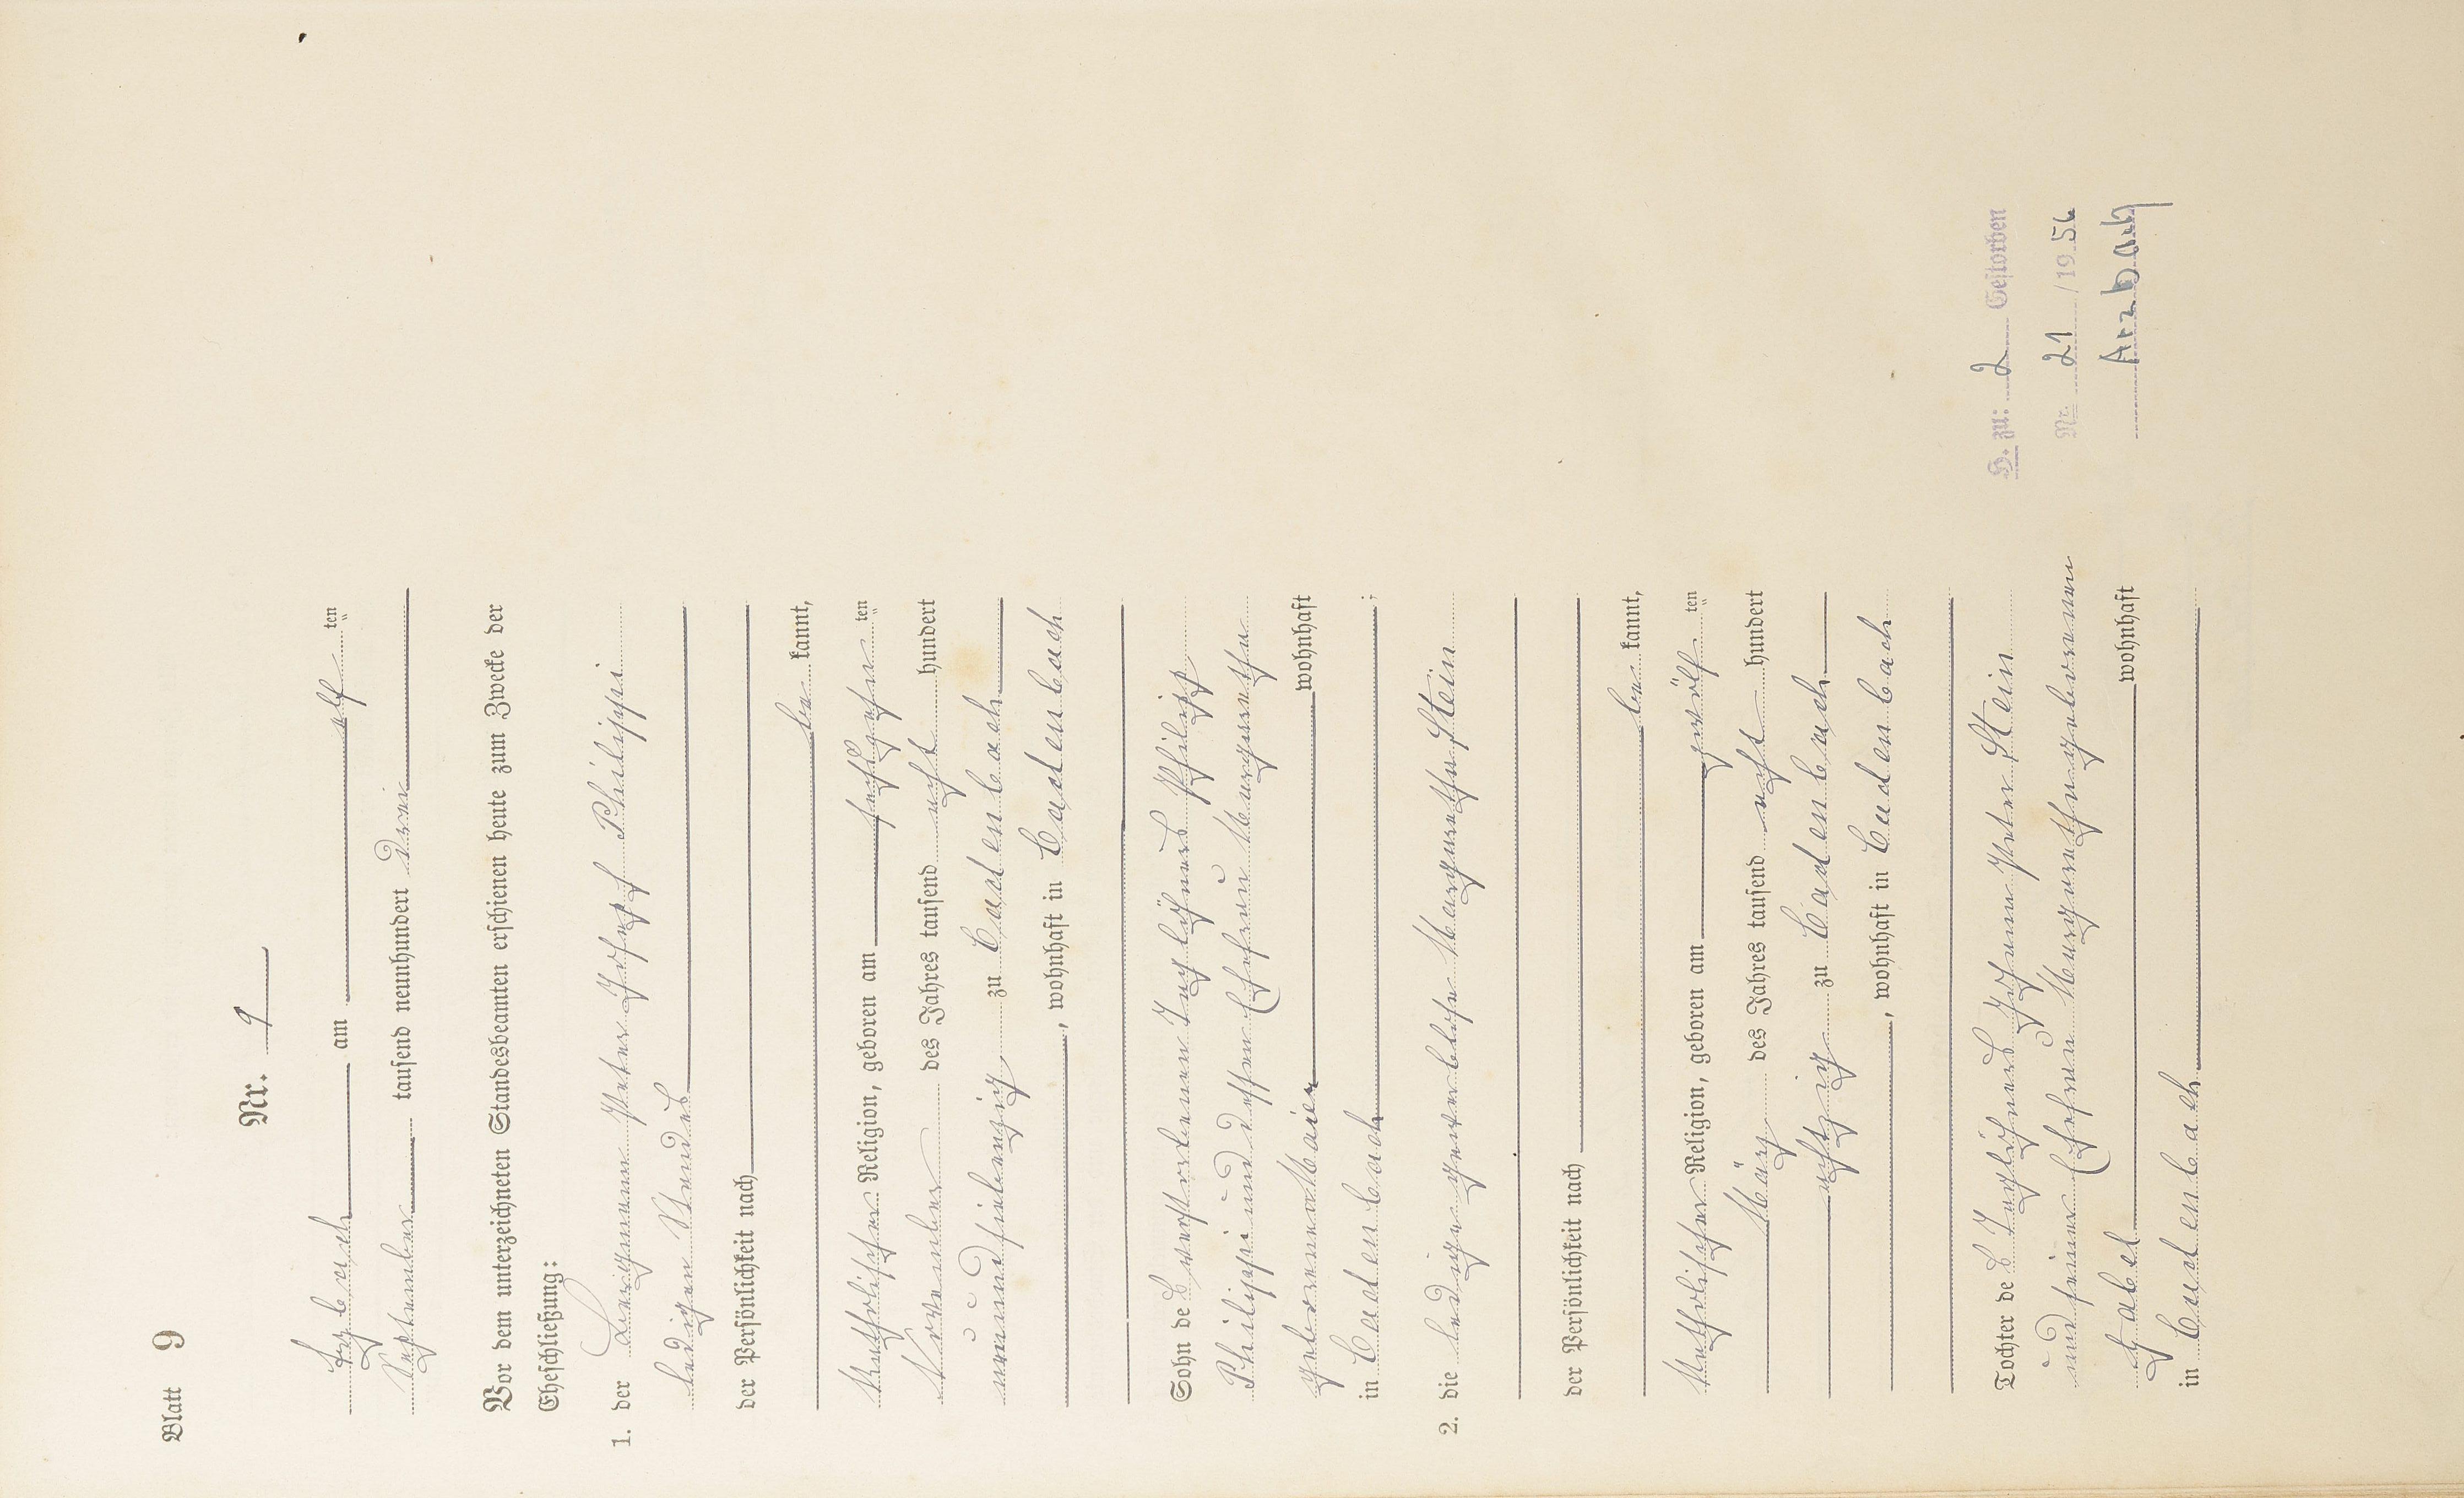 Blatt 9
Nr. 9
Arzbach am elf ten
September tausend neunhundert drei
Vor dem unterzeichneten Standesbeamten erschienen heute zum Zwecke der
Eheschließung:
1. der Bergmann Peter Josef Philippi
ledigen Standes
der Persönlichkeit nach
be kannt,
katholischer Religion, geboren am sechszehn ten
November des Jahres tausend acht hundert
neunundsiebenzig zu Cadenbach
, wohnhaft in Cadenbach
Sohn des verstorbenen Taglöhners Philipp
Philippi und dessen Ehefrau Margaretha
geborenen Maier wohnhaft
in Cadenbach ;
2. die ledige gewerblose Margaretha Stein
der Persönlichkeit nach
be kannt,
katholischer Religion, geboren am zwölf ten
März des Jahres tausend acht hundert
achtzig zu Cadenbach
, wohnhaft in Cadenbach
Tochter des Taglöhners Johann Peter Stein
und seiner Ehefrau Margaretha geborenen
Gabel wohnhaft
in Cadenbach
H. zu: 2 Gestorben
Nr. 21 /1956
Arzbach